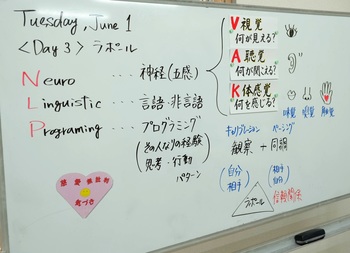 Tuesday, June 1
<Day 3> ラポール
Neuro ・・・神経(五感)
Linguistic ・・・言語・非言語
Programing ・・・プログラミング
(その人なりの経験)
(思考・行動
パターン)
V 視覚
何が見える?
A 聴覚
何が聞こえる?
K 体感覚
何を感じる?
味覚 嗅覚 触覚
キャリブレーション ペーシング
観察 + 同調
(自分 相手) (相手 自分)
ラポール
信頼関係
気づき